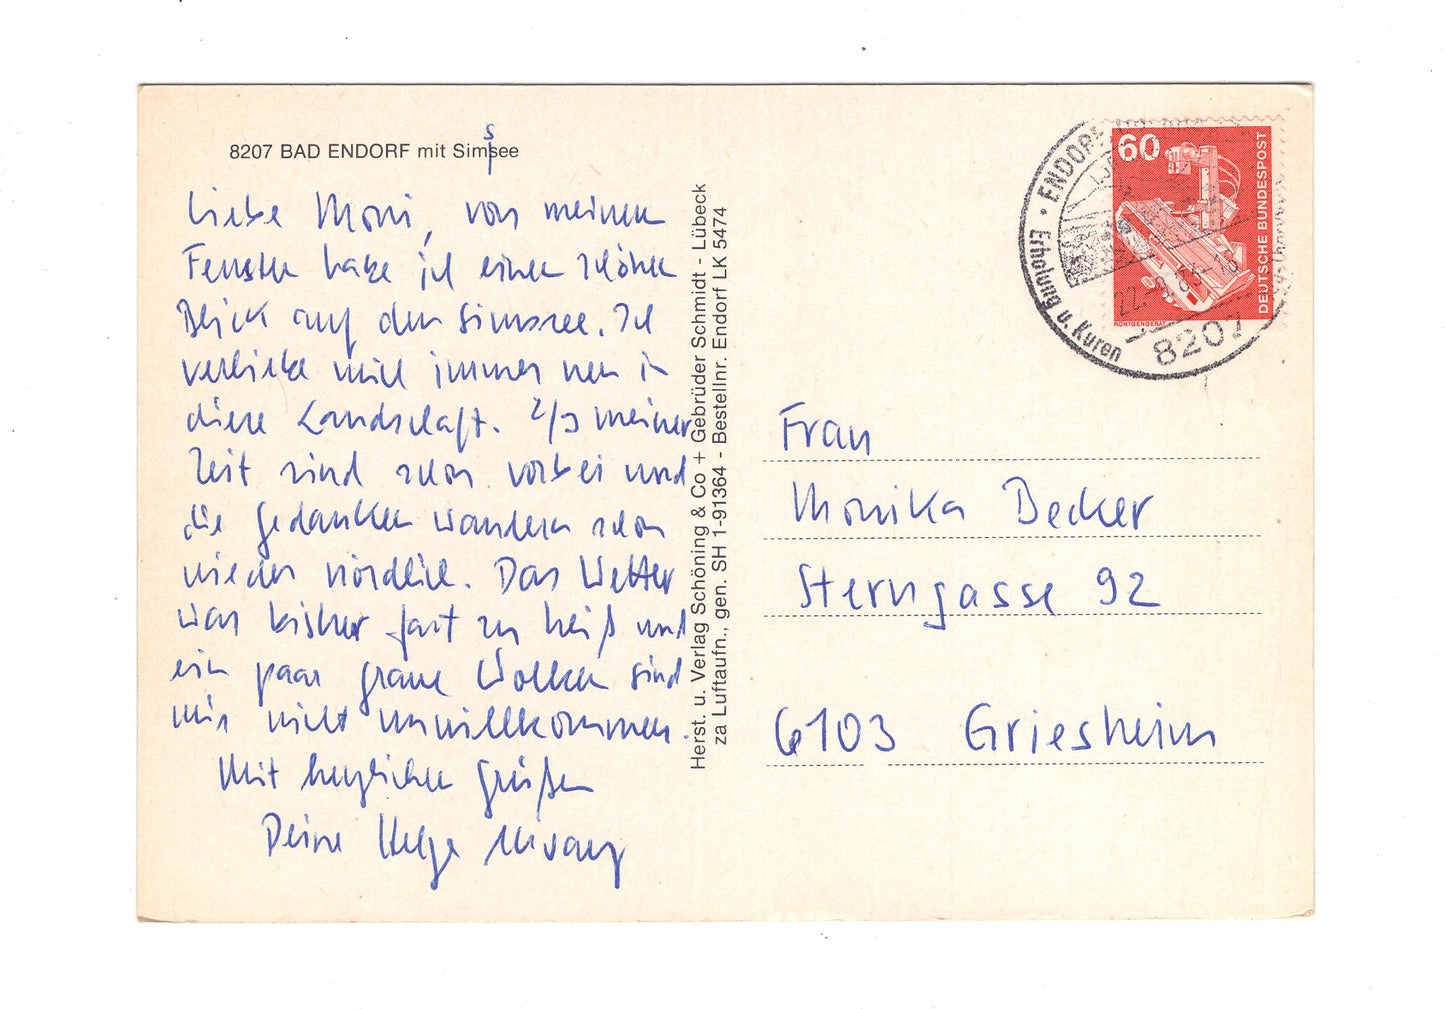 8207 BAD ENDORF mit Simsee
s
Liebe Moni, von meinem
Fenster habe ich einen schönen
Blick auf den Simssee. Ich
verliebe mich immer neu in
diese Landschaft. 2/3 meiner
Zeit sind schon vorbei und
die Gedanken wandern schon
wieder nördlich. Das Wetter
war bisher fast zu heiß und
ein paar graue Wolken sind
mir nicht unwillkommen.
Mit herzlichen Grüßen
Deine Helga
Herst. u. Verlag Schöning & Co + Gebrüder Schmidt - Lübeck
za Luftaufn., gen. SH 1-91364 - Bestellnr. Endorf LK 5474
60
DEUTSCHE BUNDESPOST
RÖNTGENGERÄT
ENDORF
Erholung u. Kuren
8207
Frau
Monika Becker
Sterngasse 92
6103 Griesheim